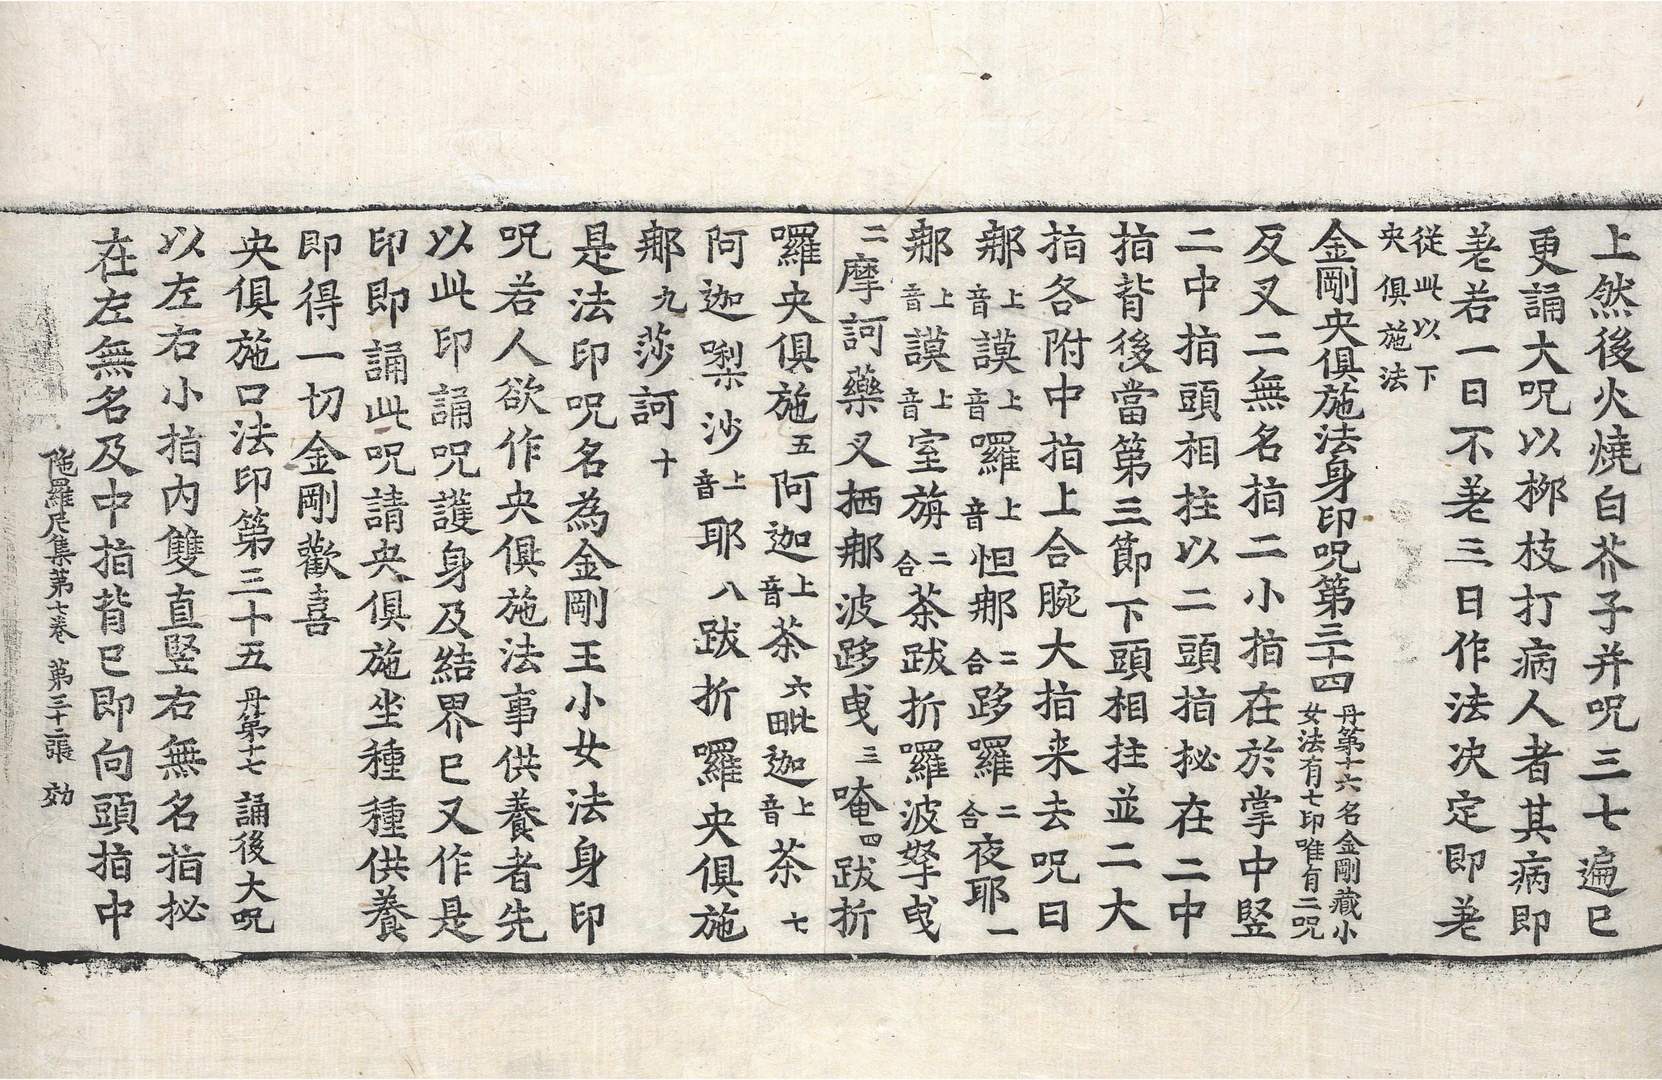 上然後火燒白芥子并呪三七遍已
更誦大呪以柳枝打病人者其病即
差若一日不差三日作法決定即差
從此以下
央俱施法
金剛央俱施法身印呪第三十四 丹第十六名金剛藏小
女法有七印唯有二呪
反叉二無名指二小指在於掌中竪
二中指頭相拄以二頭指拟在二中
指背後當第三節下頭相拄並二大
指各附中指上合腕大指来去呪曰
那上音謨上音囉上音怛那二合跢囉二合夜耶一
那上音謨上音室旃二合荼跋折囉波拏曳
二摩訶藥叉栖那波跢曳三唵四跋折
囉央俱施五阿迦上音荼六毗迦上音荼七
阿迦㗚沙上音耶八跋折囉央俱施
那九莎訶十
是法印呪名為金剛王小女法身印
呪若人欲作央俱施法事供養者先
以此印誦呪護身及結界已又作是
印即誦此呪請央俱施坐種種供養
即得一切金剛歡喜
央俱施口法印第三十五 丹第十七 誦後大呪
以左右小指內雙直竪右無名指拟
在左無名及中指背已即向頭指中
陁羅尼集第七卷 第三十二張 効